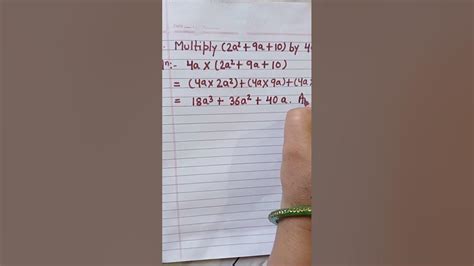 Multiply (2a² + 9a + 10) by 4
4a × (2a² + 9a + 10)
= (4a × 2a²) + (4a × 9a) + (4a
= 18a³ + 36a² + 40a.